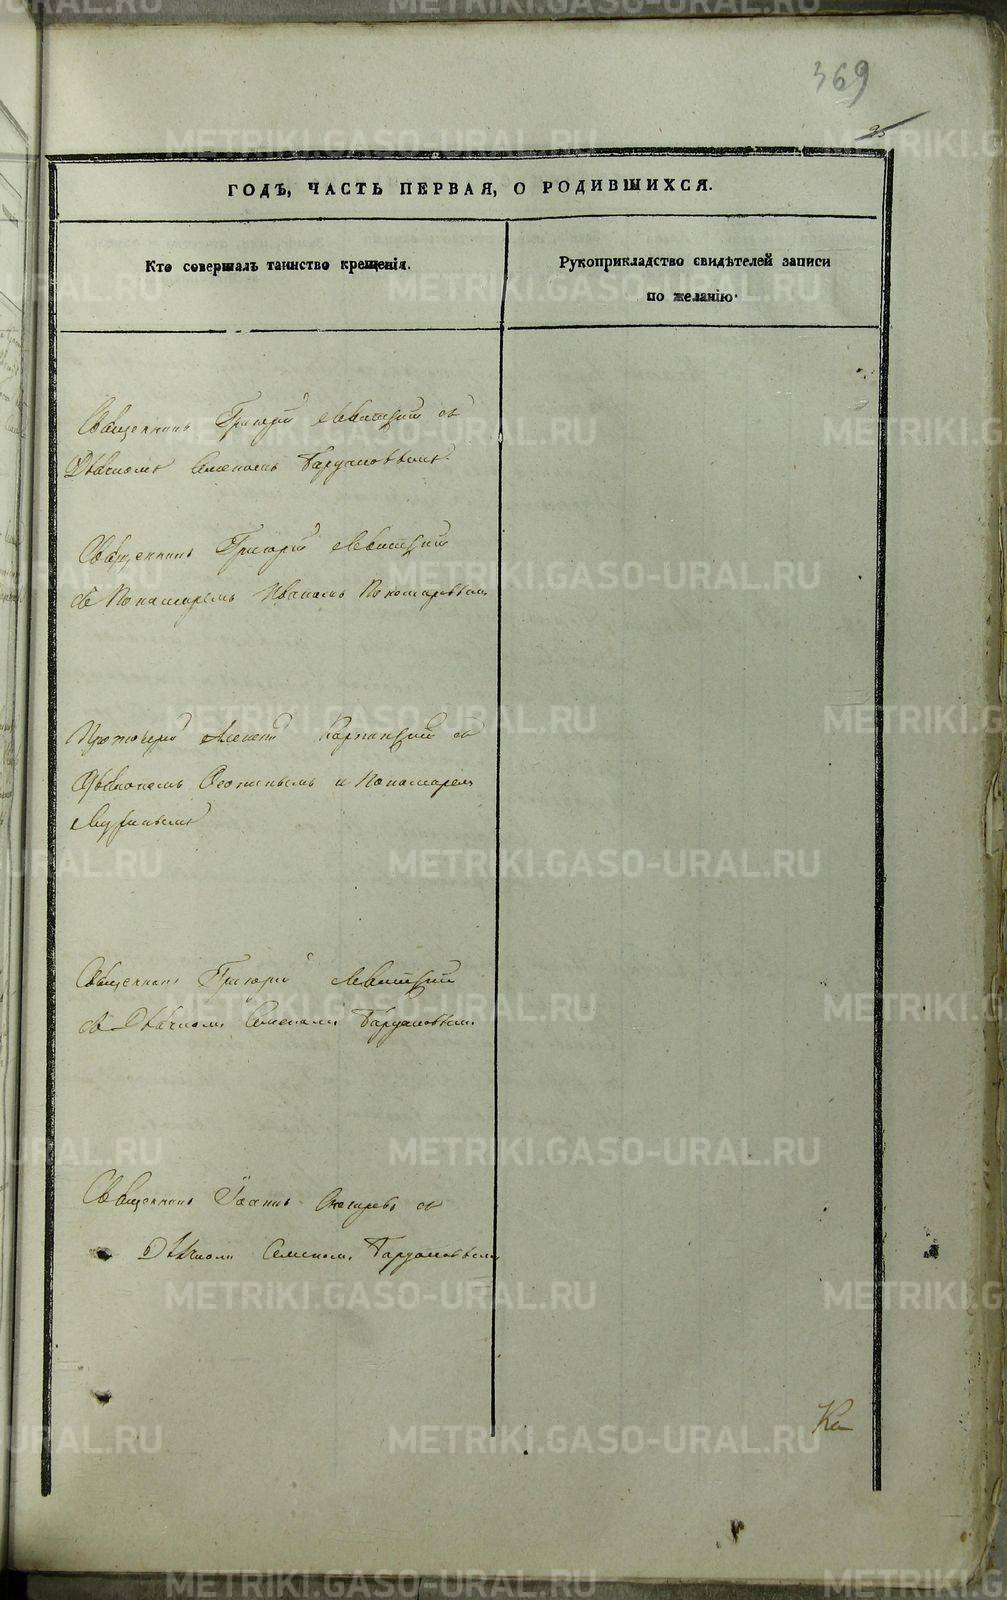 369
95
ГОДЪ, ЧАСТЬ ПЕРВАЯ, О РОДИВШИХСЯ.
Кто совершалъ таинство крещенія.
Рукоприкладство свидѣтелей записи
по желанію.
Священникъ Григорій Левитскій съ
Дьячкомъ Семеномъ
Священникъ Григорій Левитскій
съ Пономаремъ Иваномъ Пономаревымъ
Протоіерей Алексій Карпинскій съ
Дьякономъ и Пономаремъ
Священникъ Григорій Левитскій
съ Дьячкомъ Семеномъ
Священникъ Іоаннъ съ
Дьячкомъ Семеномъ
Ка
METRIKI.GASO-URAL.RU